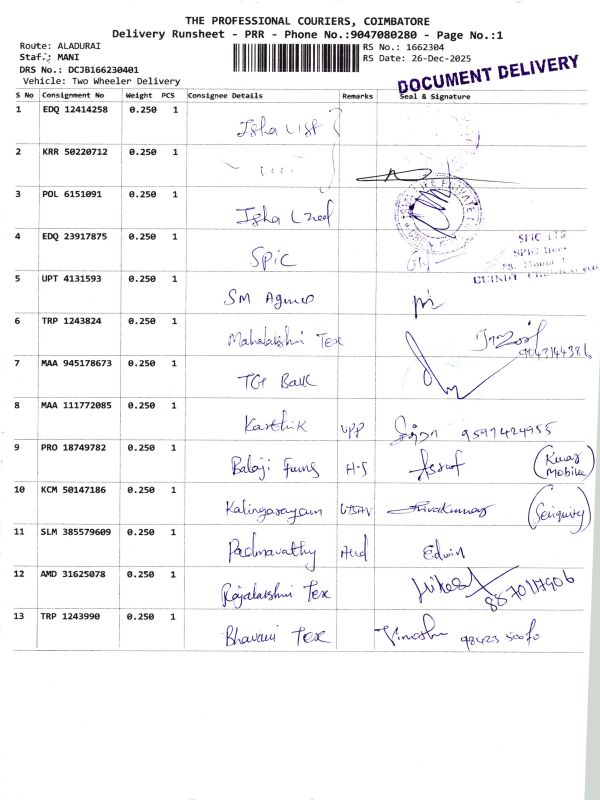 THE PROFESSIONAL COURIERS, COIMBATORE
Delivery Runsheet - PRR - Phone No.:9047080280 - Page No.:1
Route: ALADURAI
RS No.: 1662304
Staf.: MANI
RS Date: 26-Dec-2025
DRS No.: DCJB166230401
Vehicle: Two Wheeler Delivery
DOCUMENT DELIVERY
S No Consignment No Weight PCS Consignee Details Remarks Seal & Signature
1 EDQ 12414258 0.250 1 Isha
2 KRR 50220712 0.250 1
3 POL 6151091 0.250 1 Isha
4 EDQ 23917875 0.250 1 SPiC
SPIC
GUINDY
5 UPT 4131593 0.250 1 SM
6 TRP 1243824 0.250 1 Mahalakshmi Tex
7 MAA 945178673 0.250 1
8 MAA 111772085 0.250 1 Karthik upp 9597424955
9 PRO 18749782 0.250 1 Balaji H-S (Kumar Mobika)
10 KCM 50147186 0.250 1 Kalingarayam Sivakumar
11 SLM 385579609 0.250 1 Padmavathy Edwin
12 AMD 31625078 0.250 1 Rajalakshmi Tex
13 TRP 1243990 0.250 1 Bhavani Tex